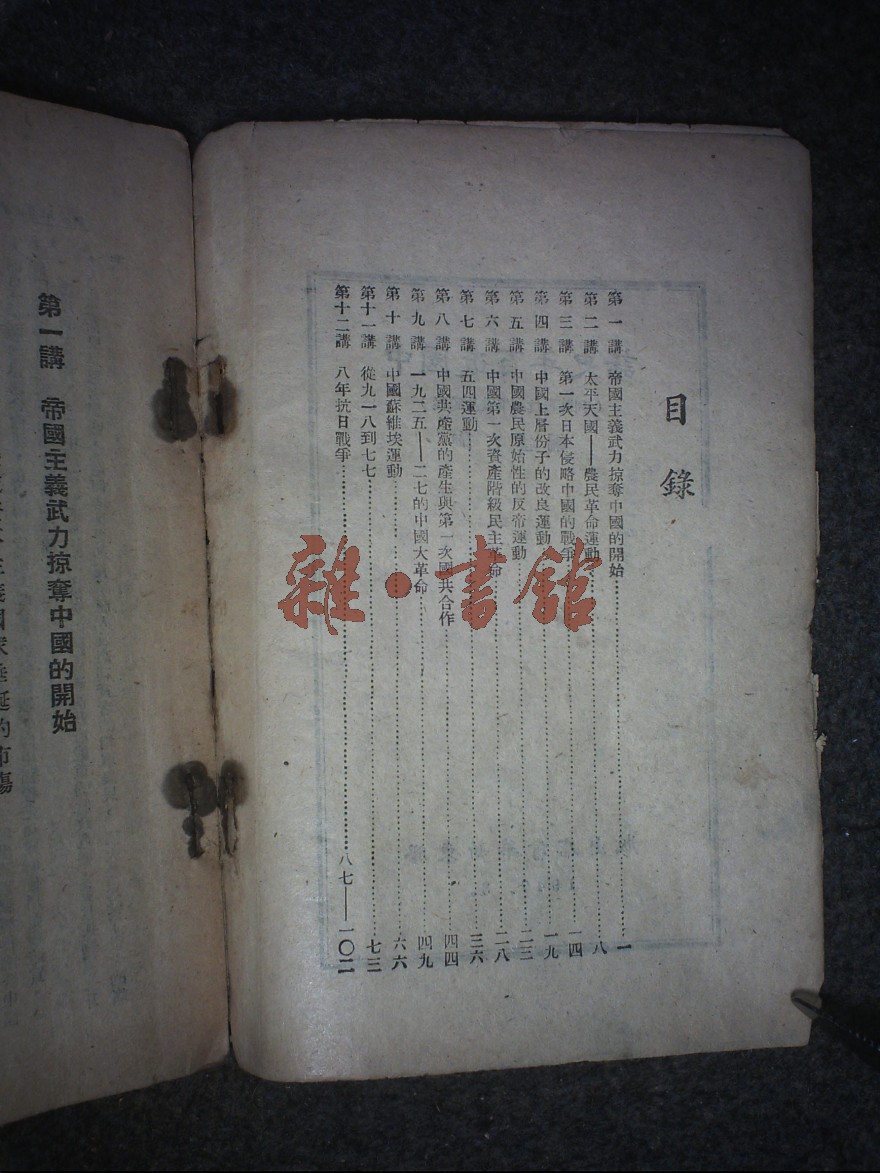 目錄
第一講　帝國主義武力掠奪中國的開始……一
第二講　太平天國——農民革命運動……八
第三講　第一次日本侵略中國的戰爭……一四
第四講　中國上層份子的改良運動……一九
第五講　中國農民原始性的反帝運動……二三
第六講　中國第一次資產階級民主革命……二八
第七講　五四運動……三六
第八講　中國共產黨的產生與第一次國共合作……四四
第九講　一九二五——二七的中國大革命……四九
第十講　中國蘇維埃運動……六六
第十一講　從九一八到七七……七三
第十二講　八年抗日戰爭……八七——一〇二
第一講　帝國主義武力掠奪中國的開始
雜·書館